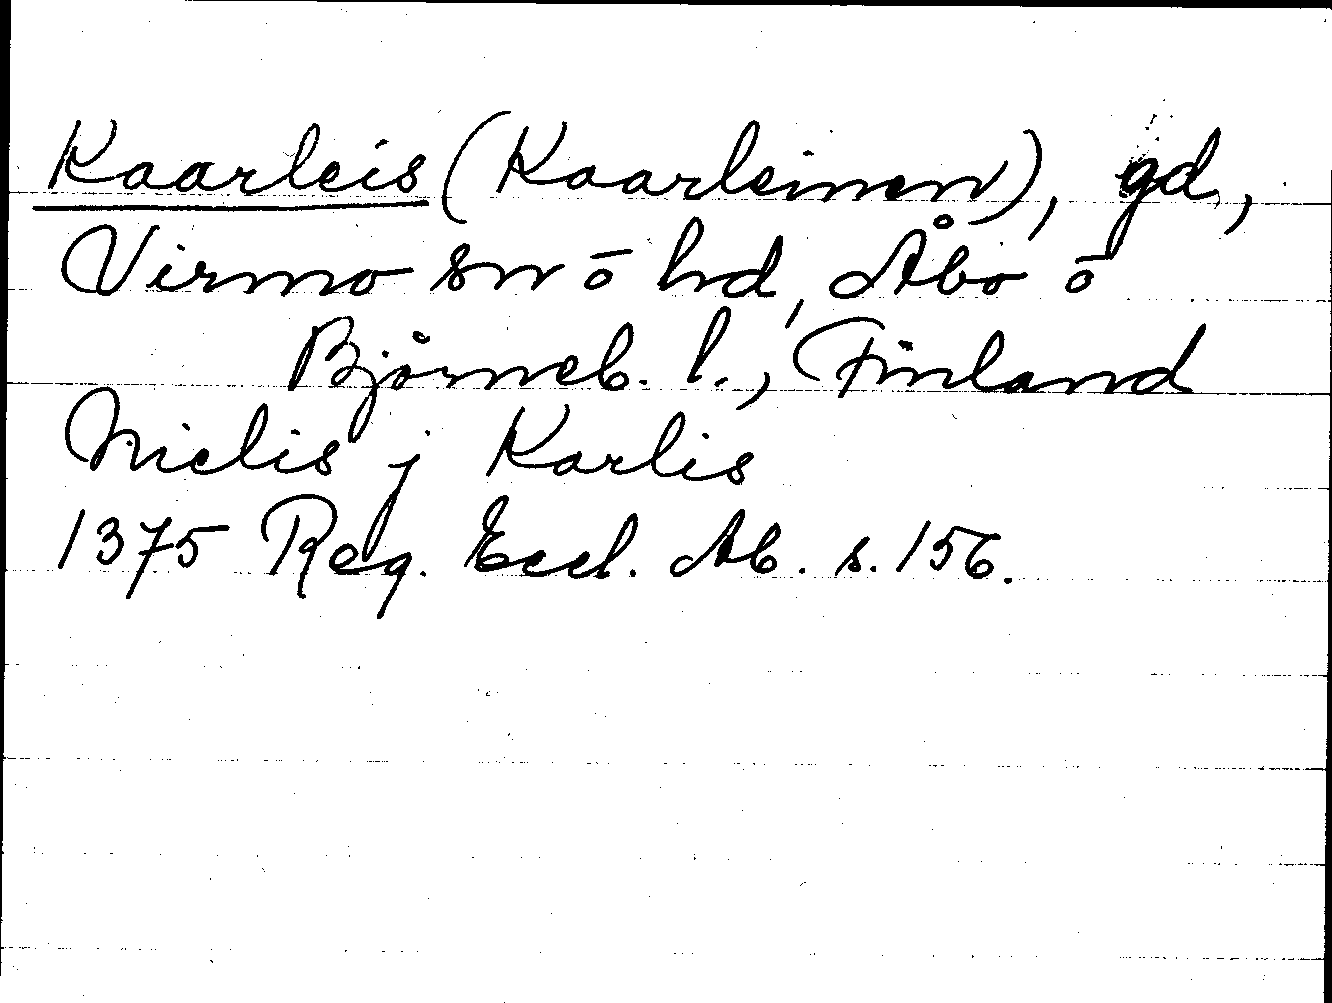 Kaarleis (Kaarleinen), gd,
Virmo sn o hd, Åbo o
Björneb. l., Finland
Nielis j Karlis
1375 Reg. Eccl. Ab. s. 156.